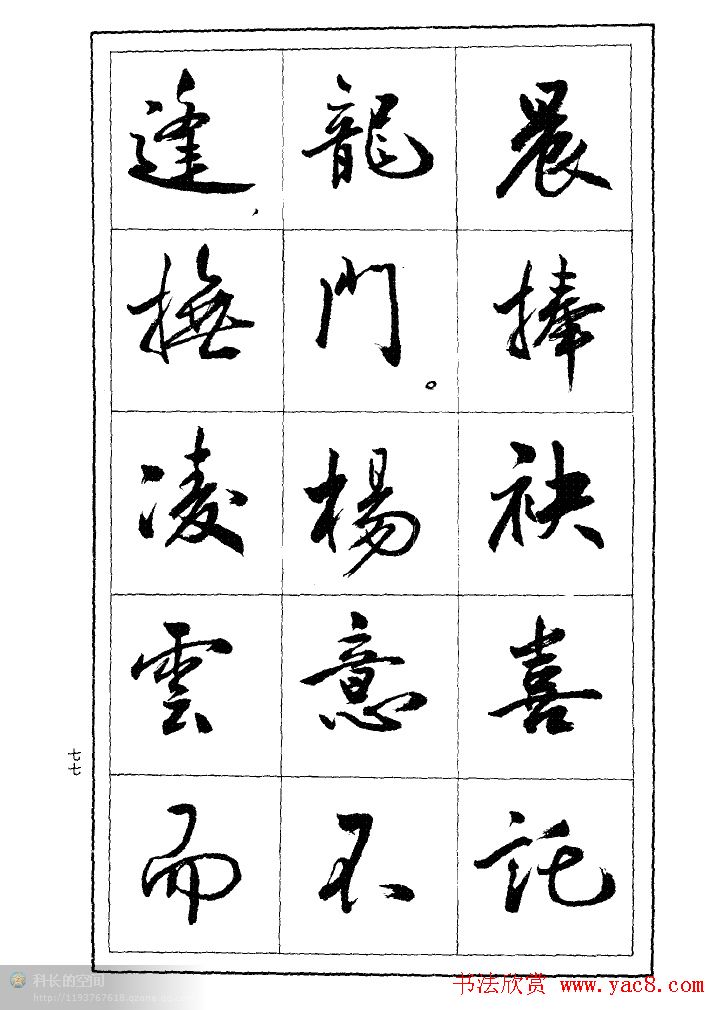 晨捧袂喜託
龍門。楊意不
逢，撫凌雲而
七七
科长的空间
http://1193767618.qzone.qq.com
书法欣赏 www.yac8.com